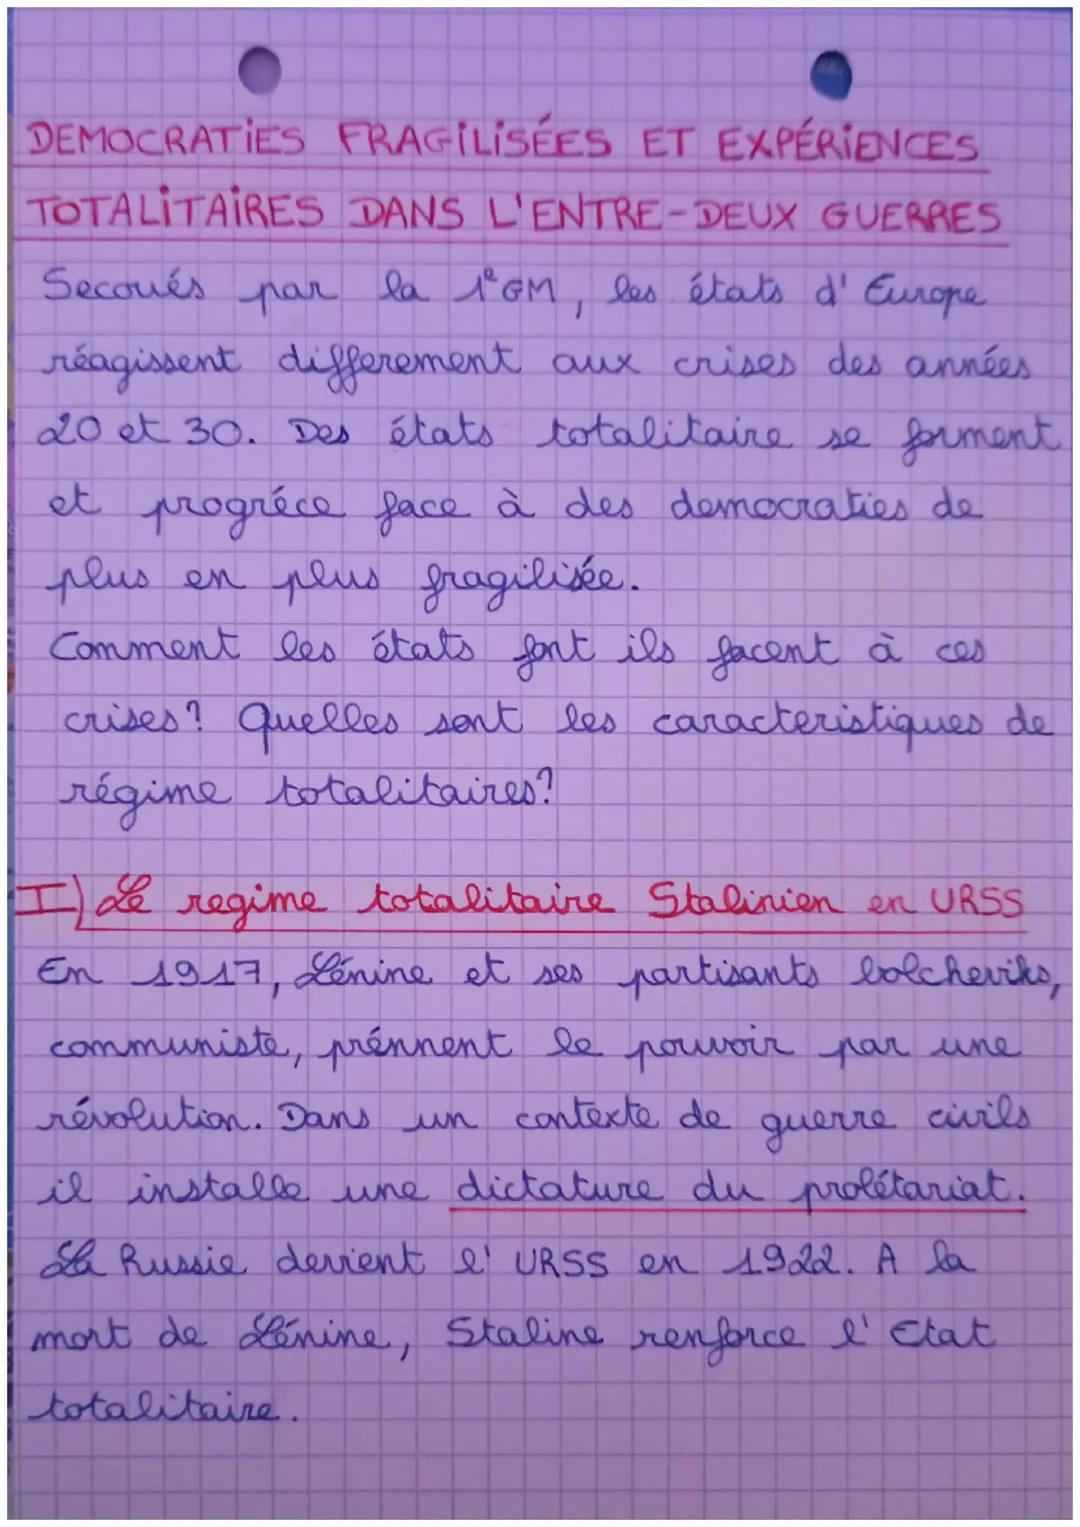 DEMOCRATIES FRAGILISÉES ET EXPÉRIENCES
TOTALITAIRES DANS L'ENTRE-DEUX GUERRES
Secoués par la 1e GM, les états d'Europe
réagissent differement aux crises des années
20 et 30. Des états totalitaire se forment
et progréce face à des democraties de
plus en plus fragilisée.
Comment les états font ils facent à ces
crises? Quelles sont les caracteristiques de
régime totalitaires?
I) Le regime totalitaire Stalinien en URSS
En 1917, Lénine et ses partisants bolcheviks,
communiste, prénnent le pouvoir par une
révolution. Dans un contexte de guerre civils
il installe une dictature du prolétariat.
La Russie devient l'URSS en 1922. A la
mort de Lénine, Staline renforce l'Etat
totalitaire.